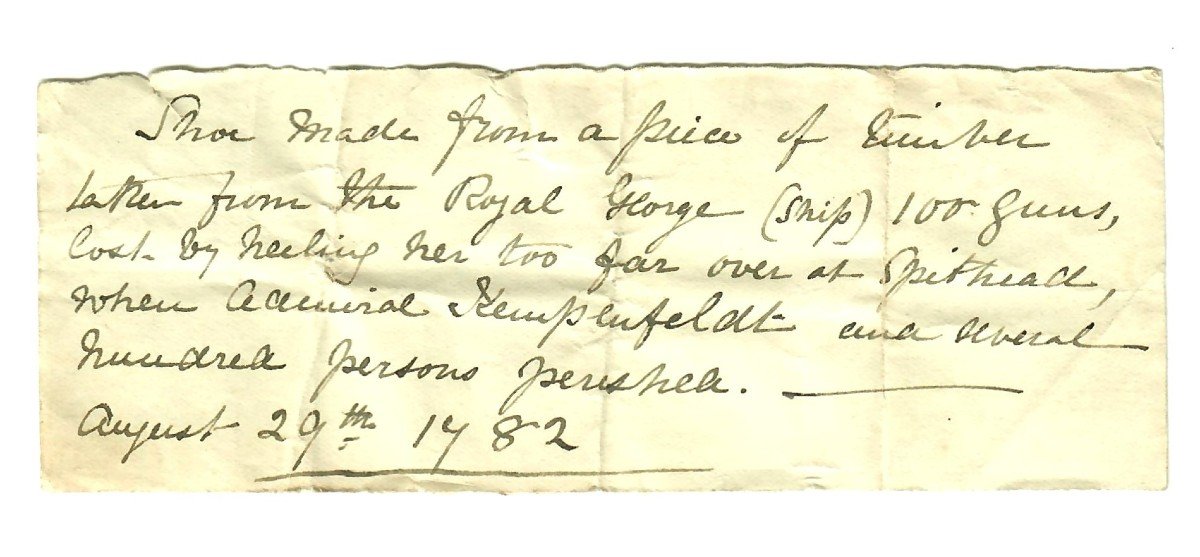 Shoe made from a piece of timber
taken from the Royal George (ship) 100 guns,
lost by heeling her too far over at Spithead,
when Admiral Kempenfeldt and several
hundred persons perished. 
August 29th 1782